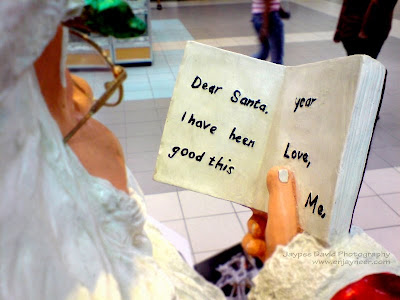 Dear Santa,
I have been
good this
year
Love,
Me,
Jaypee David Photography
www.enjayneer.com